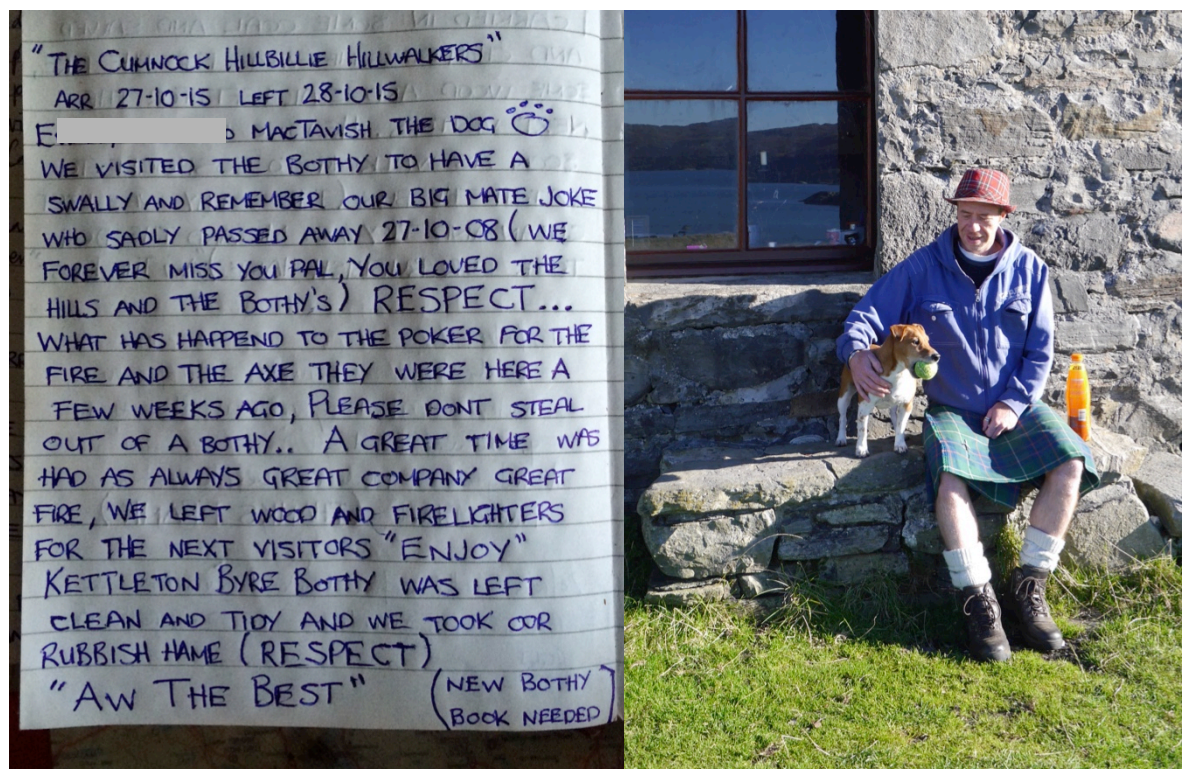 "THE CUMNOCK HILLBILLIE HILLWALKERS"
ARR 27-10-15 LEFT 28-10-15
MACTAVISH THE DOG
WE VISITED THE BOTHY TO HAVE A
SWALLY AND REMEMBER OUR BIG MATE JOKE
WHO SADLY PASSED AWAY 27-10-08 (WE
FOREVER MISS YOU PAL, YOU LOVED THE
HILLS AND THE BOTHY'S) RESPECT...
WHAT HAS HAPPEND TO THE POKER FOR THE
FIRE AND THE AXE THEY WERE HERE A
FEW WEEKS AGO, PLEASE DONT STEAL
OUT OF A BOTHY.. A GREAT TIME WAS
HAD AS ALWAYS GREAT COMPANY GREAT
FIRE, WE LEFT WOOD AND FIRELIGHTERS
FOR THE NEXT VISITORS "ENJOY"
KETTLETON BYRE BOTHY WAS LEFT
CLEAN AND TIDY AND WE TOOK OOR
RUBBISH HAME (RESPECT)
"AW THE BEST" (NEW BOTHY
BOOK NEEDED)